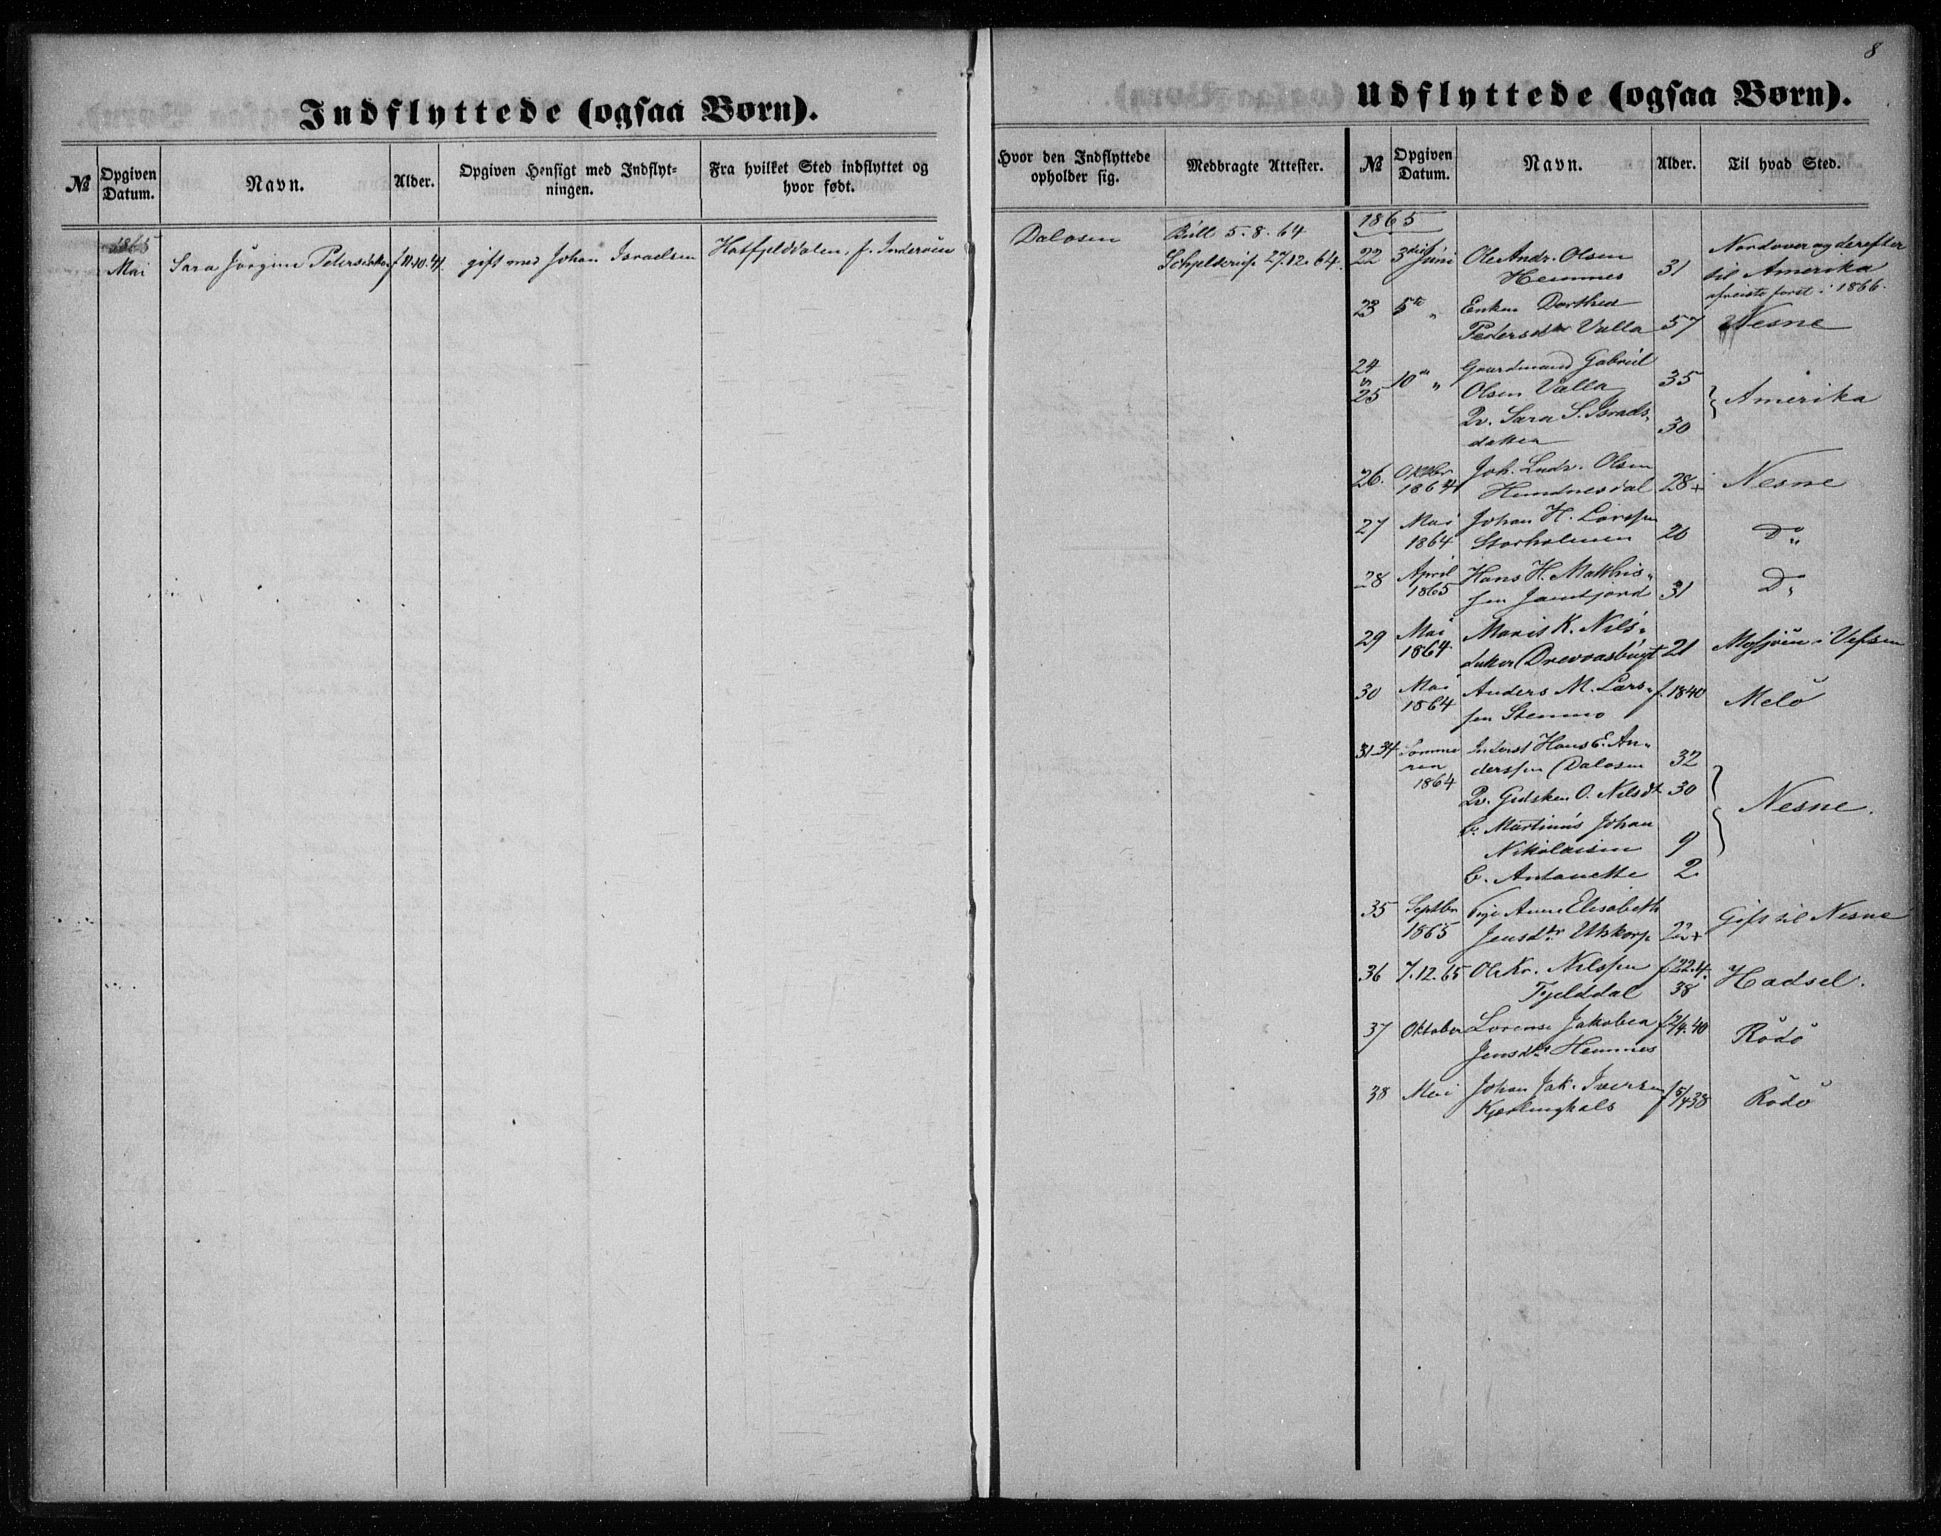 8
Indflyttede (ogsaa Børn).
№
Opgiven Datum.
Navn.
Alder.
Opgiven Hensigt med Indflyt-
ningen.
Fra hvilket Sted indflyttet og
hvor født.
Hvor den Indflyttede
opholder sig.
Medbragte Attester.
1865
Mai Sara Jörgine Petersdatter f 11.10.41 gift med Johan Israelsen Hatfjelddalen, f. Inderöen Dalosen Bull 5.8.64
27.12.64.
Udflyttede (ogsaa Børn).
№
Opgiven Datum.
Navn.
Alder.
Til hvad Sted.
1865
22 3die Juni Ole Andr. Olsen Nordover og derefter
Hemnes 31 til Amerika
afreiste först i 1866.
23 5te " Enken Dorthea
Pedersdtr Valla 57 Nesne
24 Gaardmand Gabriel
& 10de " 35
25 Olsen Valla } Amerika
Qv. Sara S. Israels-
datter 30
26. Oktbr Joh. Ludv. Olsen
1864 Hundnesdal 28+ Nesne
27 Mai Johan H. Larssen
1864 Storholmen 20 Do "
28 April Hans H. Matthis-
1865 sen Jamtjord 31 Do "
29 Mai Maris K. Nils-
1864 datter (Drevvasbugt 21 Mosjöen i Vefsen
30 Mai Anders M. Lars- f. 1840
1864 sen Stenmo Melö
31-34 Somme Inderst Hans E. An-
ren derssen (Dalosen 32
1864 Qv. Gidsken O. Nilsdt 30
} Nesne.
b. Martinus Johan
Nikolaisen 9
b. Antonette 2
35 Septbr Pige Anne Elisabeth Gift til Nesne
1865 Jensdtr Utskarp 22+
36 7.12.65 Ole Kr. Nilssen f 22.4. Hadsel.
Fjelddal 38
37 Oktober Lorense Jakobea f 2/4.40
Jensdtr Hemnes Rödö
38 Mai Johan Jak. Iversen f 5/4 38 Rödö
Kjerlinghals